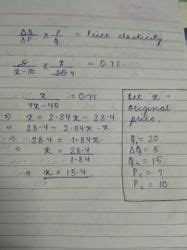 ΔQ/ΔP × P/Q = Price elasticity
5/x-10 × x/20 4 = 0.71
x/4x-40 = 0.71
⇒ x = 2.84x - 28.4
⇒ 28.4 = 2.84x - x
⇒ 28.4 = 1.84x
⇒ x = 28.4/1.84
⇒ x = 15.4
Let 'x' =
original
price.
Q₁ = 20
ΔQ = 5
Q₂ = 15
P₁ = ?
P₂ = 10